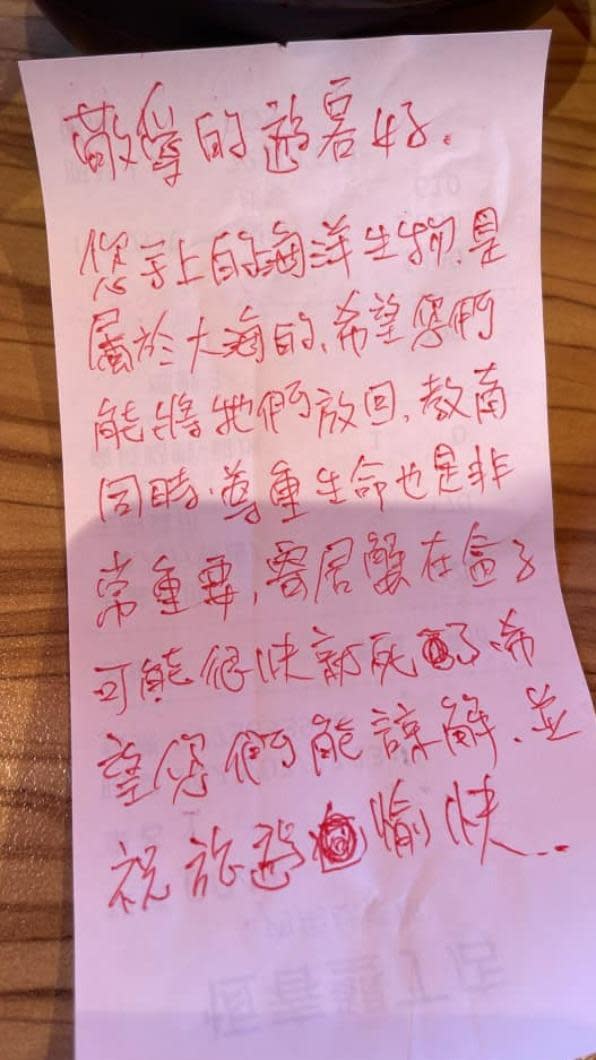 敬愛的遊客好.
您手上的海洋生物是
屬於大海的、希望您們
能將牠們放回,教育
同時、尊重生命也是非
常重要,寄居蟹在盒子
可能很快就死了、希
望您們能諒解、並
祝旅遊愉快..